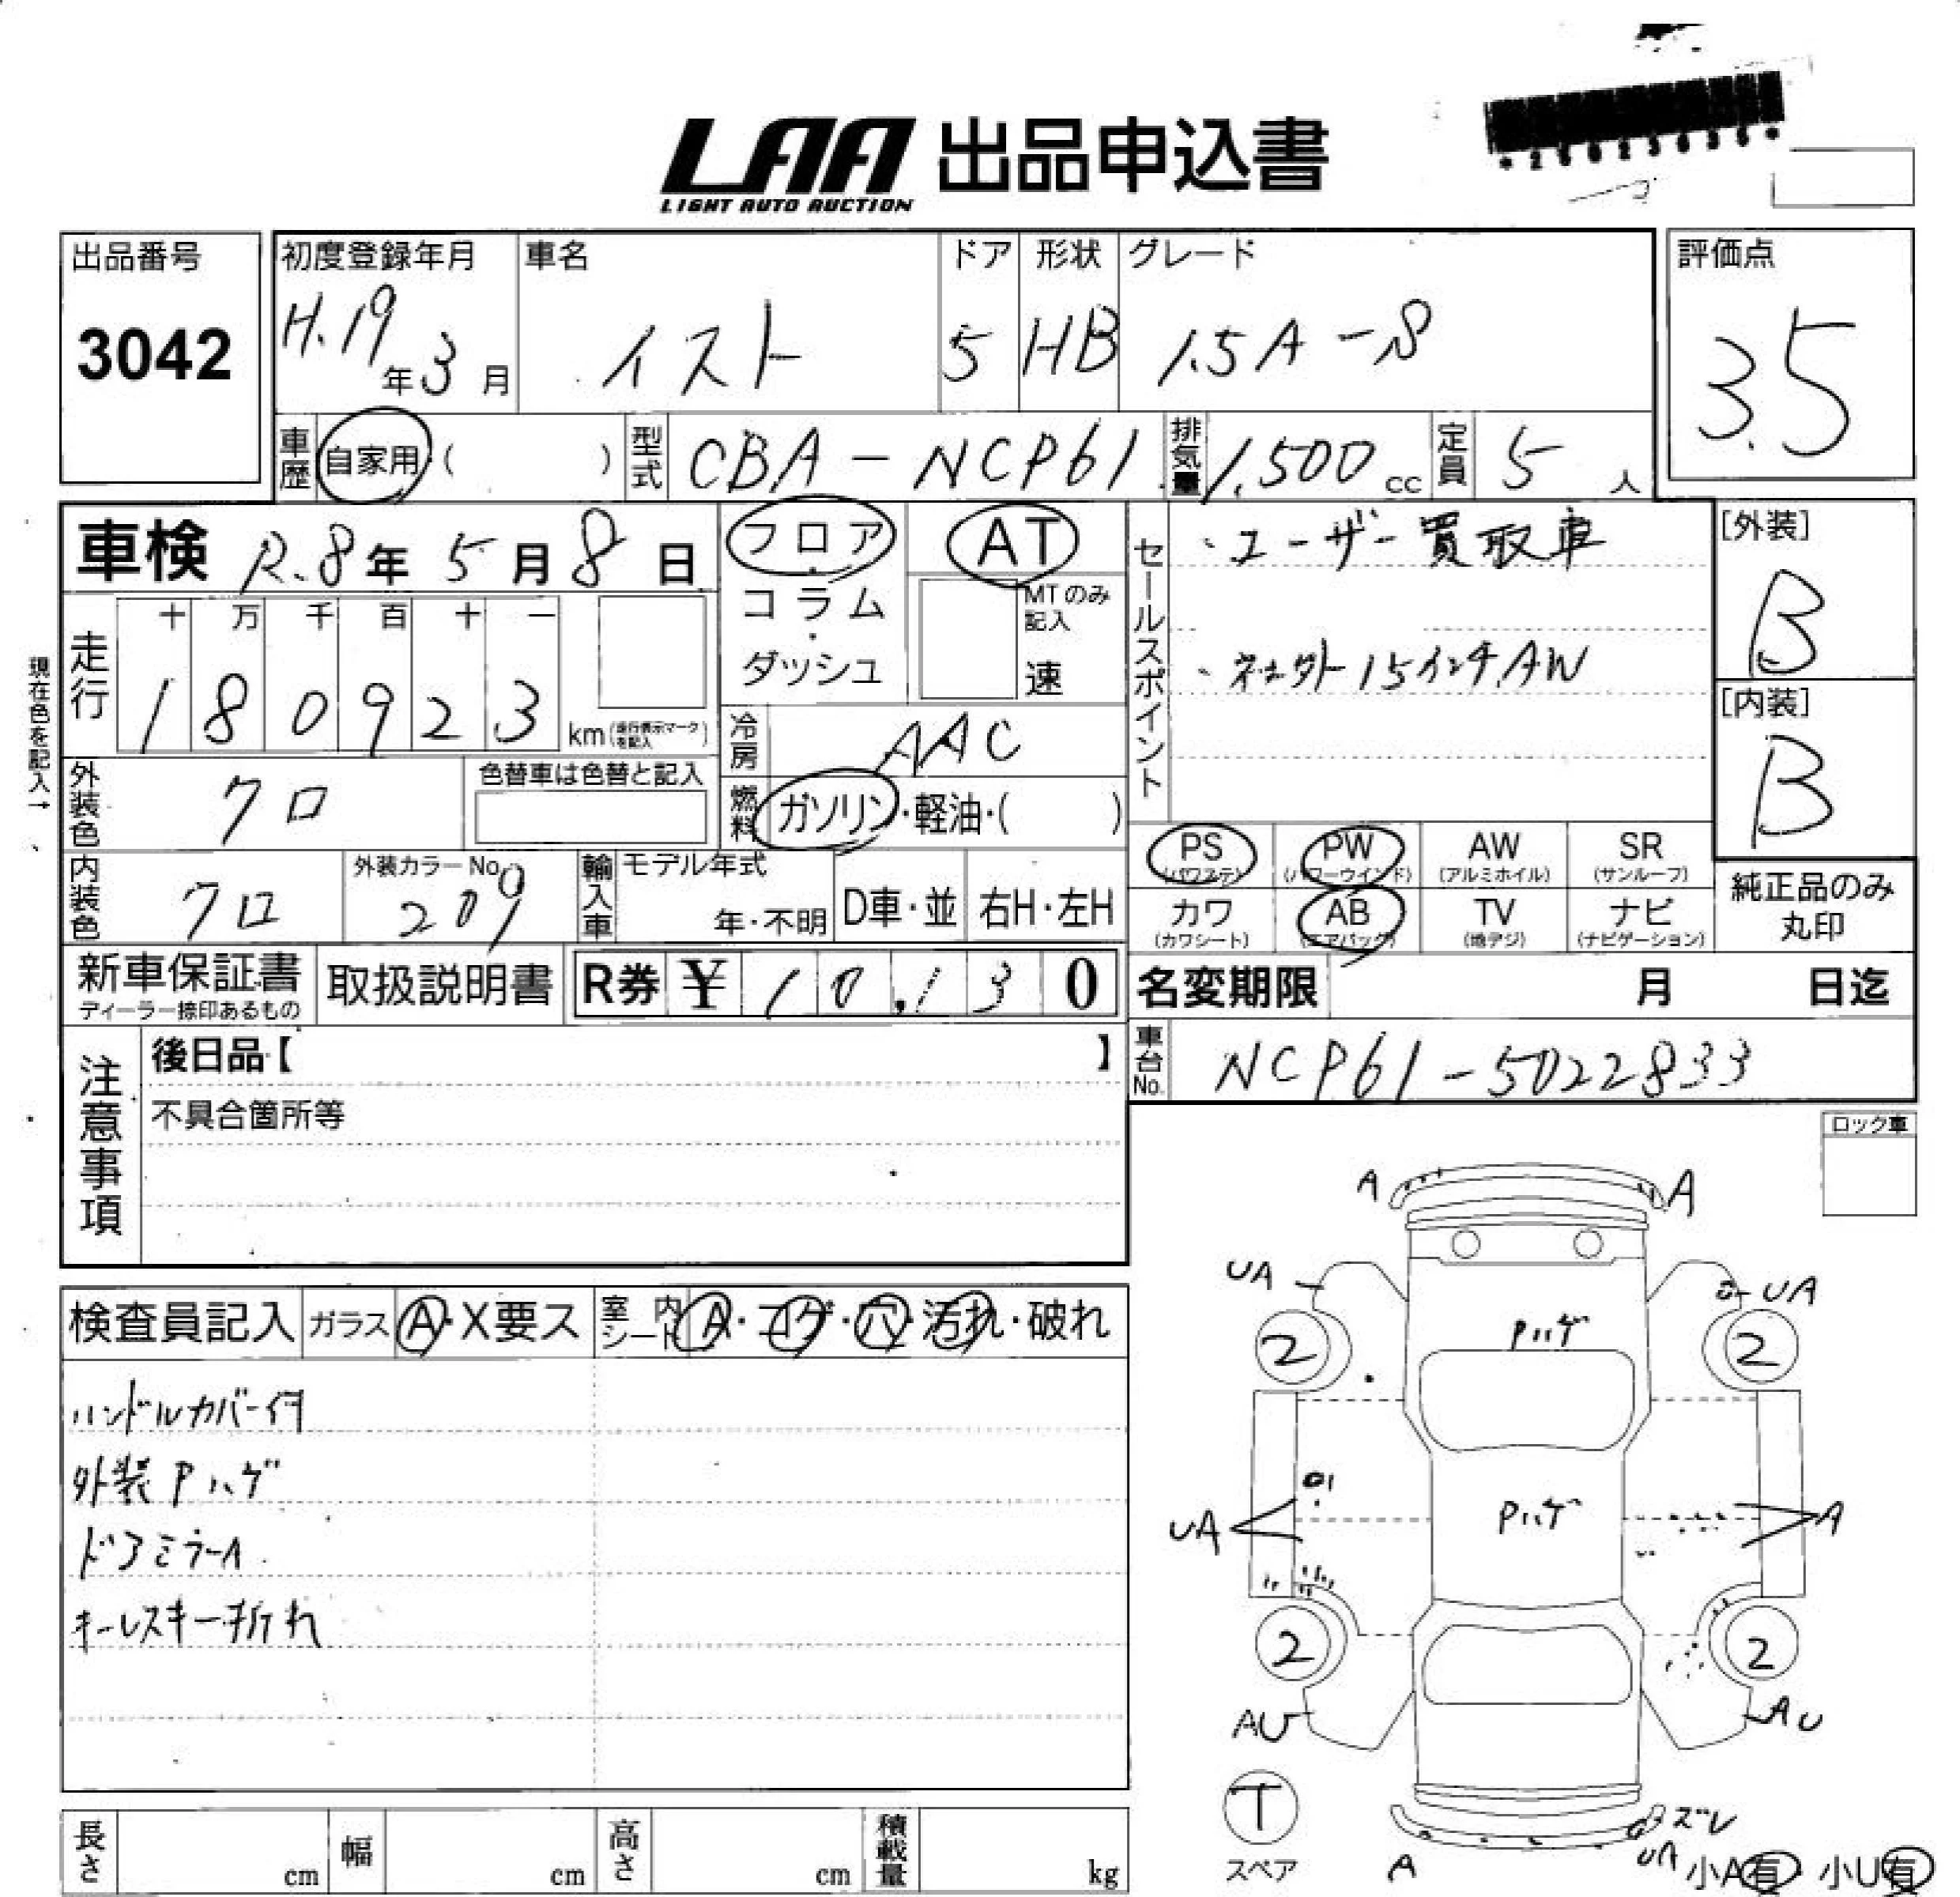 LAA 出品申込書
LIGHT AUTO AUCTION
出品番号
3042
初度登録年月
H.19年3月
車名
イスト
ドア
5
形状
HB
グレード
1.5A-S
評価点
3.5
車歴
自家用・( )
型式
CBA-NCP61
排気量
1,500cc
定員
5人
車検 R.8年5月8日
フロア・コラム・ダッシュ
AT
MTのみ記入
速
セールスポイント
・ユーザー買取車
・社外15インチAW
[外装]
B
[内装]
B
現在色を記入→
走行
十 万 千 百 十 一
1 8 0 9 2 3
km
冷房
AAC
燃料
ガソリン・軽油・( )
外装色
クロ
色替車は色替と記入
内装色
クロ
外装カラーNo.
209
輸入車
モデル年式
年・不明
D車・並
右H・左H
PS
(パワステ)
PW
(パワーウインド)
AW
(アルミホイル)
SR
(サンルーフ)
カワ
(カワシート)
AB
(エアバッグ)
TV
(地デジ)
ナビ
(ナビゲーション)
純正品のみ
丸印
新車保証書
ディーラー捺印あるもの
取扱説明書
R券 ¥ 10,130
名変期限 月 日迄
車台No.
NCP61-5022833
注意事項
後日品【 】
不具合箇所等
ロック車
検査員記入
ガラス
A・X要ス
室内シート
A・コゲ・穴・汚れ・破れ
ハンドルカバー付
外装Pハゲ
ドアミラーA
キーレスキー折れ
A A
UA UA
2 Pハゲ 2
UA Pハゲ A
2 2
AU AU
T
スペア
A
ズレ
UA
小A有・小U有
長さ cm
幅 cm
高さ cm
積載量 kg